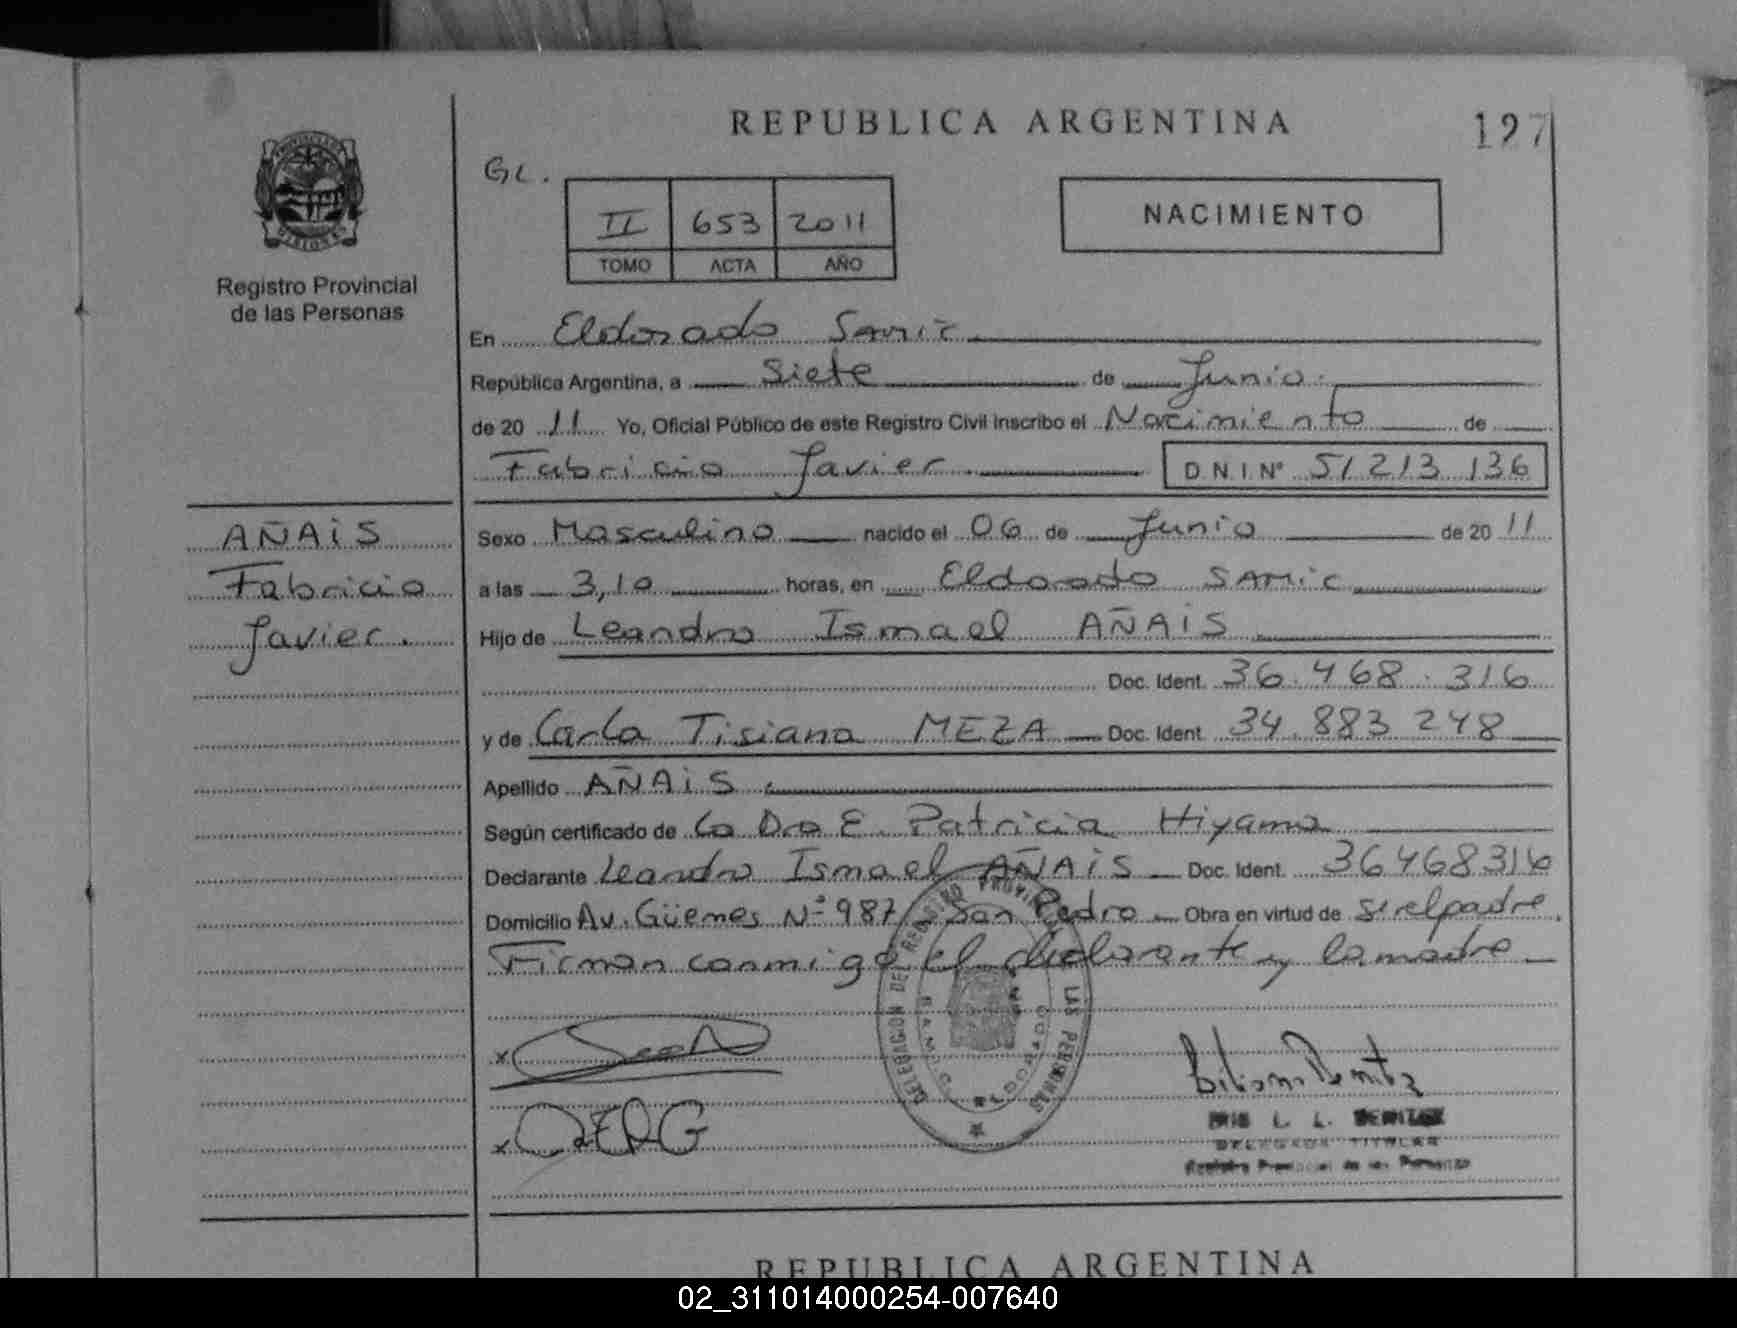 REPUBLICA ARGENTINA
197
GL.
II 653 2011
TOMO ACTA AÑO
NACIMIENTO
Registro Provincial
de las Personas
En Eldorado Samic
República Argentina, a Siete de Junio
de 20 11 Yo, Oficial Público de este Registro Civil Inscribo el Nacimiento de
Fabricio Javier D.N.I. Nº 51 213 136
AÑAIS
Fabricio
Javier.
Sexo Masculino nacido el 06 de Junio de 20 11
a las 3,10 horas, en Eldorado SAMIC
Hijo de Leandro Ismael AÑAIS
Doc. Ident. 36.468.316
y de Carla Tisiana MEZA Doc. Ident. 34.883 248
Apellido AÑAIS
Según certificado de la Dra E. Patricia Hiyama
Declarante Leandro Ismael AÑAIS Doc. Ident. 36468316
Domicilio Av. Güemes Nº 987 San Pedro Obra en virtud de ser el padre.
Firman conmigo el declarante y la madre
DELEGACION DEL REGISTRO PROVINCIAL LAS PERSONAS
ELDORADO
DELEGADA TITULAR
Registro Provincial de las Personas
REPUBLICA ARGENTINA
02_311014000254-007640